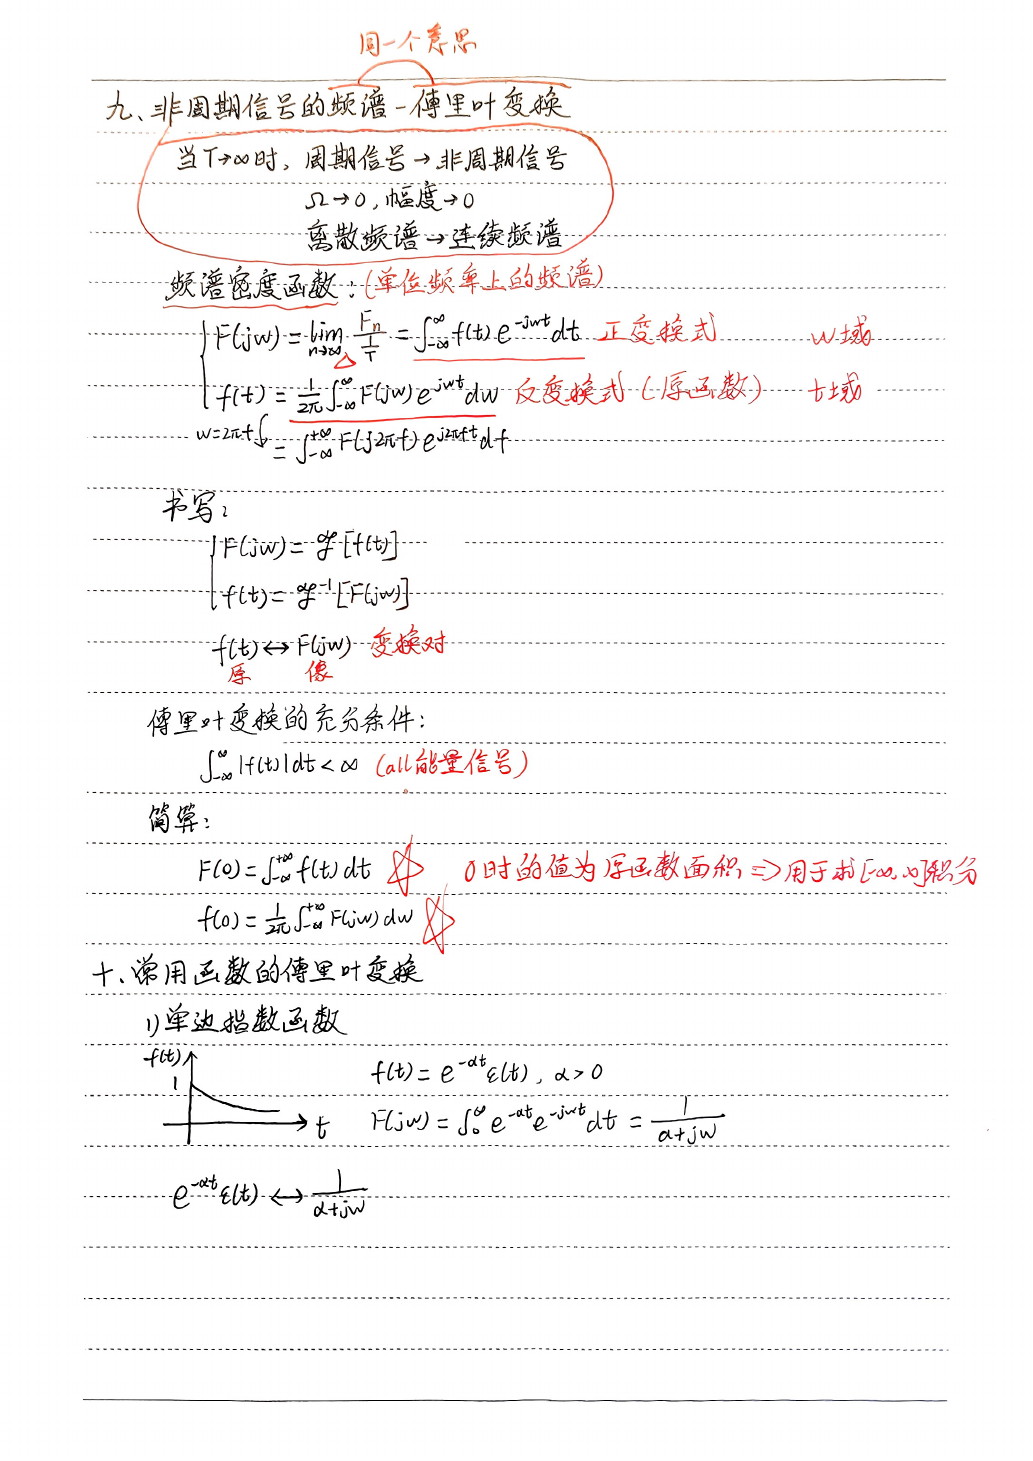 同一个意思
九、非周期信号的频谱-傅里叶变换
当T→∞时，周期信号→非周期信号
Ω→0，幅度→0
离散频谱→连续频谱
频谱密度函数：(单位频率上的频谱)
F(jw) = lim n→∞ Fn/(1/T) = ∫_{-∞}^{∞} f(t) e^{-jwt} dt 正变换式 w域
f(t) = 1/2π ∫_{-∞}^{∞} F(jw) e^{jwt} dw 反变换式(原函数) t域
w=2πf = ∫_{-∞}^{+∞} F(j2πf) e^{j2πft} df
书写：
F(jw) = ℱ[f(t)]
f(t) = ℱ^{-1}[F(jw)]
f(t) ↔ F(jw) 变换对
原 像
傅里叶变换的充分条件：
∫_{-∞}^{∞} |f(t)| dt < ∞ (all能量信号)
简算：
F(0) = ∫_{-∞}^{+∞} f(t) dt 0时的值为原函数面积 => 用于求[-∞,∞]积分
f(0) = 1/2π ∫_{-∞}^{+∞} F(jw) dw
十、常用函数的傅里叶变换
1) 单边指数函数
f(t)
1
t
f(t) = e^{-αt} ε(t), α>0
F(jw) = ∫_{0}^{∞} e^{-αt} e^{-jwt} dt = 1/(α+jw)
e^{-αt} ε(t) ↔ 1/(α+jw)